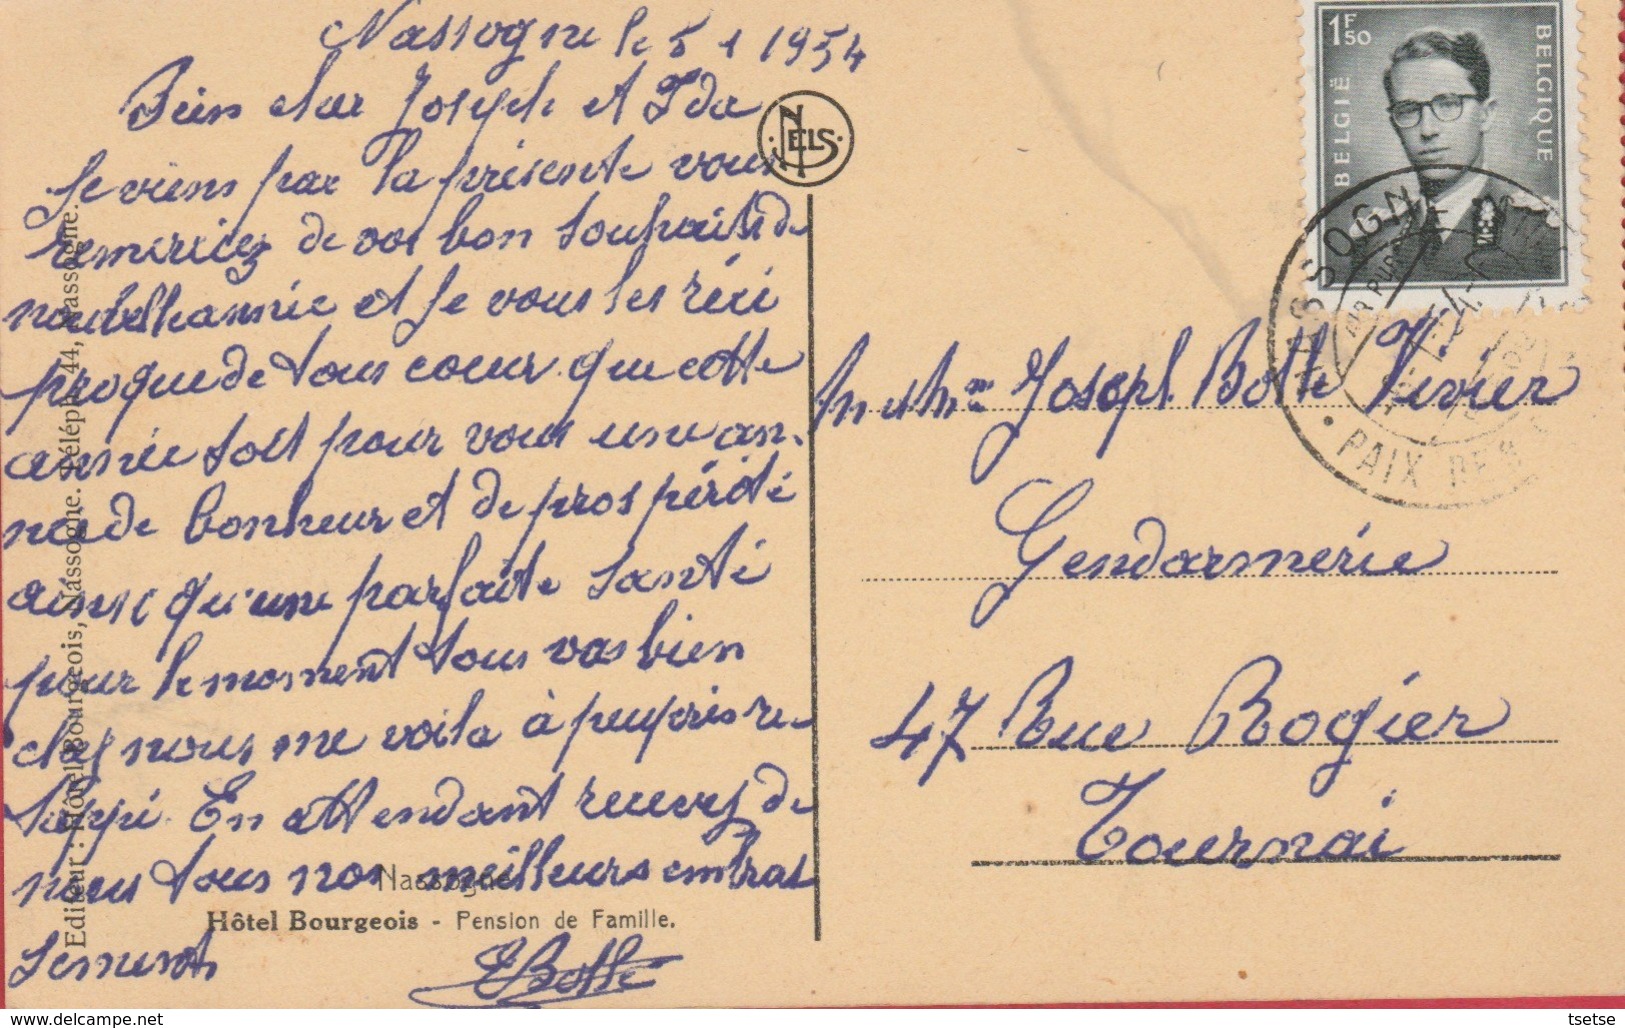 Nassogne le 5 1 1954
Bien cher Joseph et Ida
Je viens par la présente vous
remerciez de vos bon souhaits de
nouvelle année et je vous les réci
proque de tous coeur que cette
année soit pour vous une an.
née de bonheur et de prospérité
ainsi qu'une parfaite santé
pour le moment tous vas bien
chez nous me voila à peu près re
tapi. En attendant recevez de
nous tous nos meilleurs embras
sement
E Botte
NELS
Nassogne
Hôtel Bourgeois - Pension de Famille.
Editeur : Hôtel Bourgeois, Nassogne. Téléph. 44, Nassogne.
1F50
BELGIË
BELGIQUE
NASSOGNE
AIR PUR
PAIX DES
Mr et Mme Joseph Botte Vivier
Gendarmerie
47 Rue Rogier
Tournai
tsetse